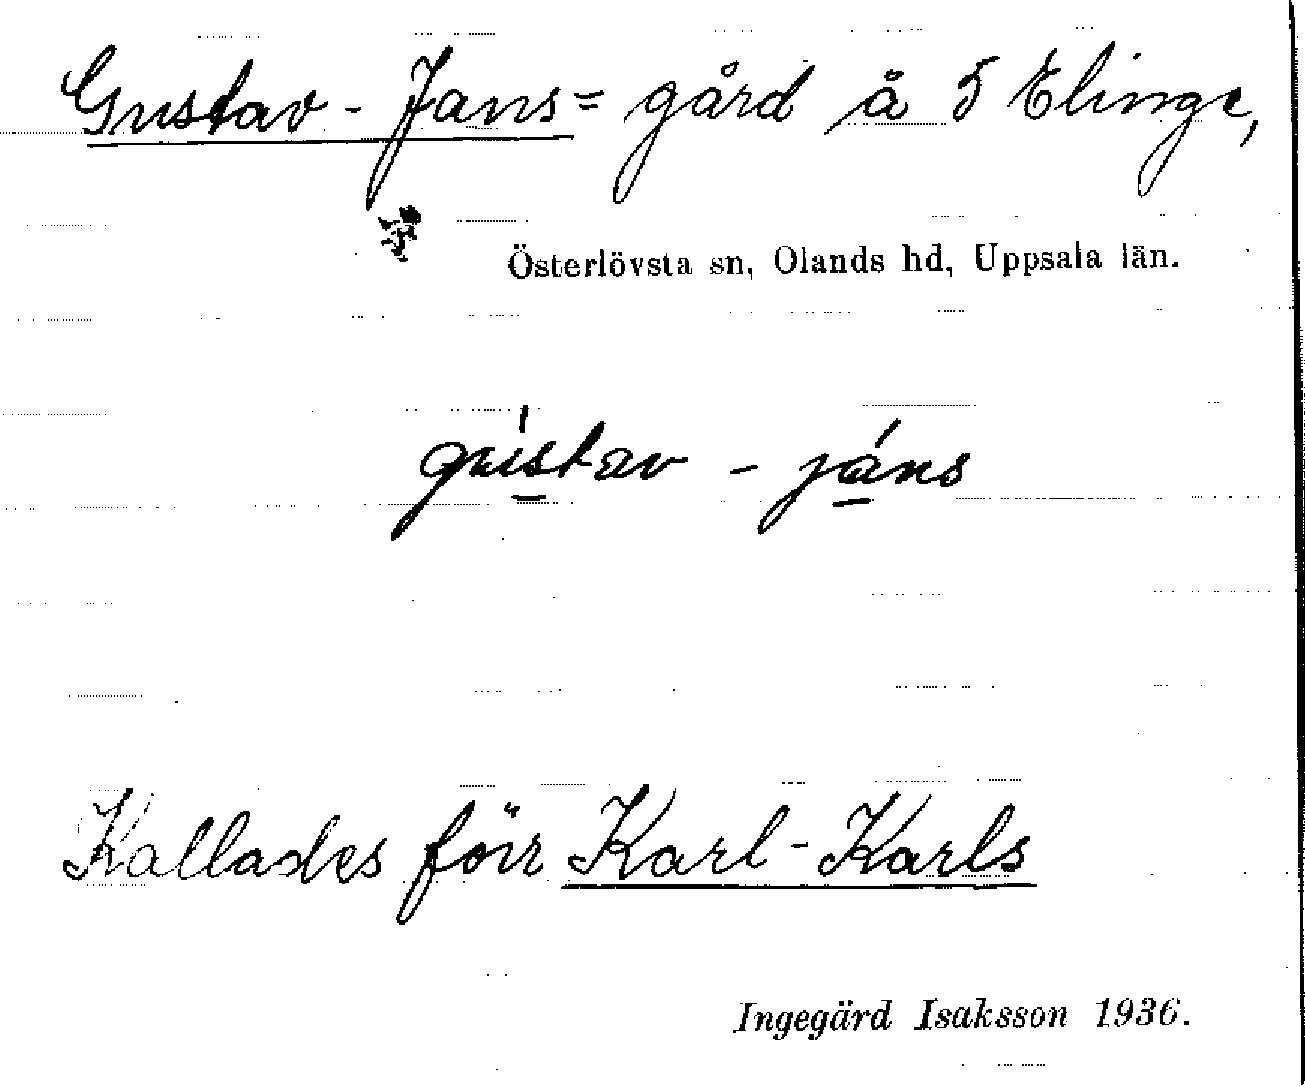 Gustav-Jans= gård å 5 Elinge,
Österlövsta sn, Olands hd, Uppsala län.
gústav - jáns
Kallades förr Karl-Karls
Ingegärd Isaksson 1936.